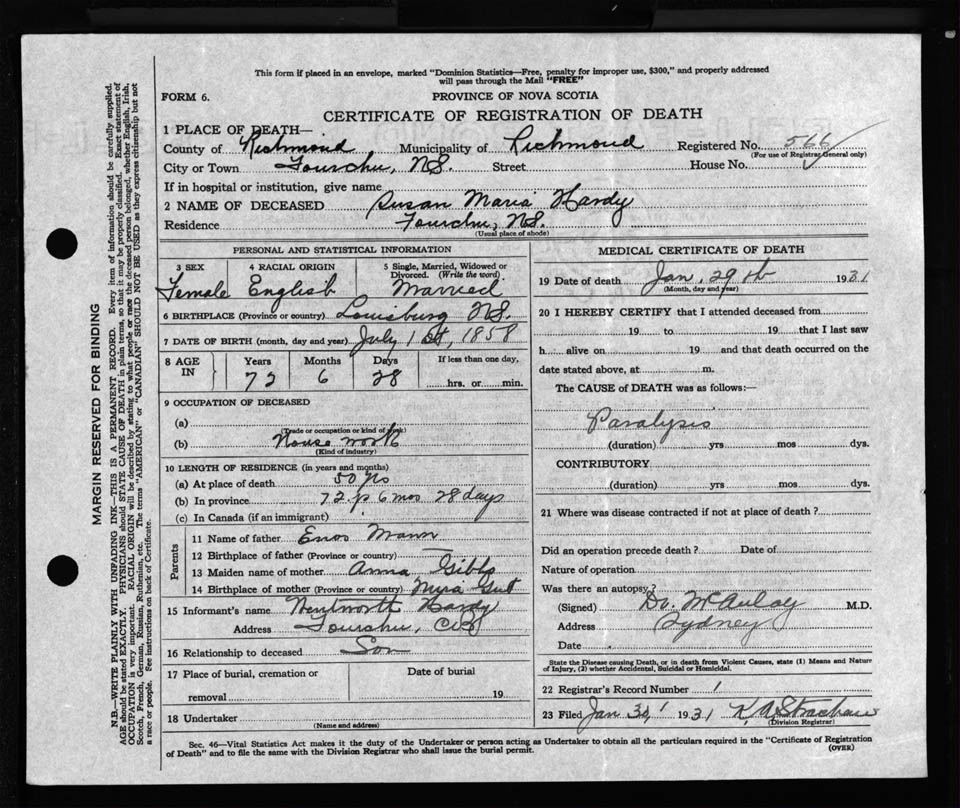 This form if placed in an envelope, marked "Dominion Statistics—Free, penalty for improper use, $300," and properly addressed
will pass through the Mail "FREE"
FORM 6.
PROVINCE OF NOVA SCOTIA
CERTIFICATE OF REGISTRATION OF DEATH
1 PLACE OF DEATH—
County of Richmond Municipality of Richmond Registered No. 566
(For use of Registrar General only)
City or Town Fourchu, N.S. Street House No.
If in hospital or institution, give name
2 NAME OF DECEASED Susan Maria Hardy
Residence Fourchu, N.S.
(Usual place of abode)
PERSONAL AND STATISTICAL INFORMATION
3 SEX 4 RACIAL ORIGIN 5 Single, Married, Widowed or
Divorced. (Write the word)
Female English Married
6 BIRTHPLACE (Province or country) Louisburg N.S.
7 DATE OF BIRTH (month, day and year) July 1st, 1858
8 AGE IN Years Months Days If less than one day,
72 6 28 hrs. or min.
9 OCCUPATION OF DECEASED
(a)
(Trade or occupation or kind of work)
(b) House work
(Kind of industry)
10 LENGTH OF RESIDENCE (in years and months)
(a) At place of death 50 yrs
(b) In province 72 y 6 mos 28 days
(c) In Canada (if an immigrant)
Parents
11 Name of father Enos Mann
12 Birthplace of father (Province or country) —
13 Maiden name of mother Anna Gibbs
14 Birthplace of mother (Province or country) Mira Gut
15 Informant's name Wentworth Hardy
Address Fourchu, C.B.
16 Relationship to deceased Son
17 Place of burial, cremation or Date of burial
removal 19
18 Undertaker
(Name and address)
MEDICAL CERTIFICATE OF DEATH
19 Date of death Jan, 29th 1931
(Month, day and year)
20 I HEREBY CERTIFY that I attended deceased from
19 to 19 that I last saw
h alive on 19 and that death occurred on the
date stated above, at m.
The CAUSE of DEATH was as follows:
Paralysis
(duration) yrs mos dys.
CONTRIBUTORY
(duration) yrs mos dys.
21 Where was disease contracted if not at place of death?
Did an operation precede death? Date of
Nature of operation
Was there an autopsy?
(Signed) Dr. McAulay M.D.
Address Sydney
Date
State the Disease causing Death, or in death from Violent Causes, state (1) Means and Nature
of Injury, (2) whether Accidental, Suicidal or Homicidal.
22 Registrar's Record Number 1
23 Filed Jan 31, 1931 K A Strachan
(Division Registrar)
Sec. 46—Vital Statistics Act makes it the duty of the Undertaker or person acting as Undertaker to obtain all the particulars required in the "Certificate of Registration
of Death" and to file the same with the Division Registrar who shall issue the burial permit.
(OVER)
MARGIN RESERVED FOR BINDING
N.B.—WRITE PLAINLY WITH UNFADING INK—THIS IS A PERMANENT RECORD. Every item of information should be carefully supplied.
AGE should be stated EXACTLY. PHYSICIANS should STATE CAUSE OF DEATH in plain terms, so that it may be properly classified. Exact statement of
OCCUPATION is very important. RACIAL ORIGIN will be described by stating to what people or race the deceased person belonged, whether English, Irish,
Scotch, French, German, Russian, Ruthenian, etc. The terms "AMERICAN" or "CANADIAN" SHOULD NOT BE USED as they express citizenship but not
a race or people. See instructions on back of Certificate.